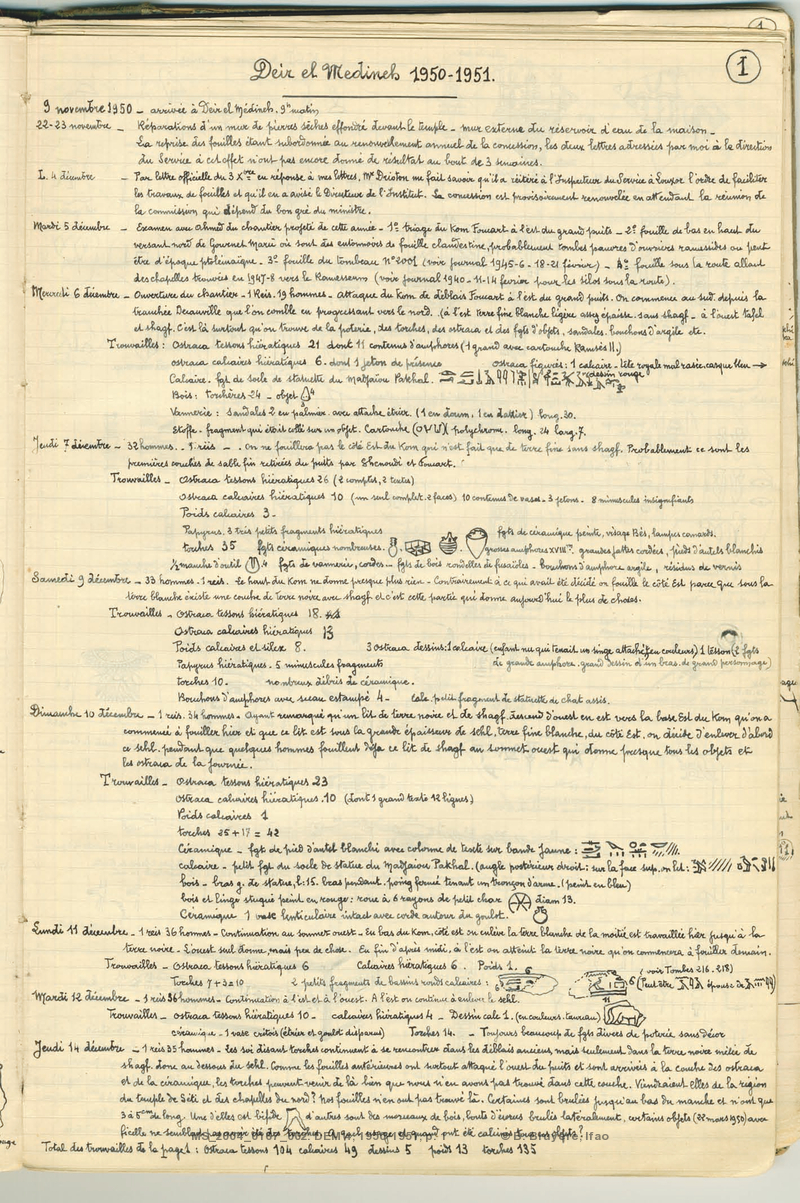 1
Deir el Medineh 1950-1951.
9 novembre 1950 - arrivée à Deir el Médineh. 9h matin
22-23 novembre - Réparations d'un mur de pierres sèches effondré devant le temple - mur externe du réservoir d'eau de la maison -
La reprise des fouilles étant subordonnée au renouvellement annuel de la concession, les deux lettres adressées par moi à la direction
du Service à cet effet n'ont pas encore donné de résultat au bout de 3 semaines.
L. 4 décembre - Par lettre officielle du 3 Xbre en réponse à mes lettres, Mr Drioton me fait savoir qu'il a réitéré à l'Inspecteur du Service à Louxor l'ordre de faciliter
les travaux de fouilles et qu'il en a avisé le Directeur de l'Institut. La concession est provisoirement renouvelée en attendant la réunion de
la commission qui dépend du bon gré du ministre.
Mardi 5 décembre - Examen avec Ahmed du chantier projeté de cette année - 1° triage du Kom Foucart à l'est du grand puits - 2° fouille de bas en haut du
versant nord de Gournet Marei où sont des entonnoirs de fouille clandestine, probablement tombes pauvres d'ouvriers ramessides ou peut
être d'époque ptolémaïque - 3° fouille du tombeau n° 2001 (voir journal 1945-6 - 18-21 février) - 4° fouille sous la route allant
des chapelles trouvées en 1947-8 vers le Ramesseum (voir journal 1940 - 11-14 février pour les silos sous la route).
Mercredi 6 décembre - Ouverture du chantier - 1 Reis. 19 hommes - Attaque du Kom de déblais Foucart à l'est du grand puits. On commence au sud. depuis la
tranchée Decauville que l'on comble en progressant vers le nord. Là l'est terre fine blanche légère assy épaisse. sans shagf - à l'ouest tafel
et shagf. C'est là surtout qu'on trouve de la poterie, des torches, des ostraca et des fgts d'objets, sandales. bouchons d'argile etc.
Trouvailles : Ostraca tessons hiératiques 21 dont 11 contenus d'amphores (1 grand avec cartouche Ramsès II.)
ostraca calcaires hiératiques 6. dont 1 jeton de présence ostraca figurés: 1 calcaire - tête royale mal rasée. casque bleu →
Calcaire. fgt de socle de statuette du Madjaiou Pakhal. dessin rouge
Bois: torchères 24 - objet
Vannerie : Sandales 2 en palmier. avec attache étrier. (1 en doum. 1 en dattier) long. 30.
Stoffe. fragment qui était collé sur un objet. Cartouche polychrome. long. 24 larg. 7.
Jeudi 7 décembre - 32 hommes. 1 reis - . On ne fouillera pas le côté Est du Kom qui n'est fait que de terre fine sans shagf. Probablement ce sont les
premières couches de sable fin retirées du puits par Shenoudi et Foucart.
Trouvailles - Ostraca tessons hiératiques 26 (2 complets, 2 textes)
Ostraca calcaires hiératiques 10 (un seul complet. 2 faces) 10 contenus de vases - 3 jetons - 8 minuscules insignifiants
Poids calcaires 3 -
Papyrus. 3 très petits fragments hiératiques fgts de céramique peinte, visage Bès, lampes canards.
torches 35 fgts céramiques nombreuses. grosse amphores XVIIIe. grandes jattes cordées, pieds d'autels blanchis
1/2 manche d'outil 4 fgts de vannerie, cordes - fgts de bois rondelles de fusaïoles - bouchons d'amphore argile, résidus de vernis
Samedi 9 décembre - 33 hommes - 1 reis. Le haut du Kom ne donne presque plus rien - Contrairement à ce qui avait été décidé on fouille le côté Est parce que sous la
terre blanche existe une couche de terre noire avec shagf et c'est cette partie qui donne aujourd'hui le plus de choses.
Trouvailles - Ostraca tessons hiératiques 18.
Ostraca calcaires hiératiques 13
Poids calcaires et silex 8. 3 ostraca dessins: 1 calcaire (enfant nu qui tenait un singe attaché, en couleurs) 1 tesson (2 fgts
Papyrus hiératiques. 5 minuscules fragments de grande amphore. grand dessin d'un bras. de grand personnage)
torches 10. nombreux débris de céramique.
Bouchons d'amphores avec sceau estampé 4 - Calc. petit fragment de statuette de chat assis.
Dimanche 10 décembre - 1 reis. 34 hommes - Ayant remarqué qu'un lit de terre noire et de shagf descend d'ouest en est vers la base Est du Kom qu'on a
commencé à fouiller hier et que ce lit est sous la grande épaisseur de sehl, terre fine blanche, du côté Est, on décide d'enlever d'abord
ce sehl. pendant que quelques hommes fouillent déjà ce lit de shagf au sommet ouest qui donne presque tous les objets et
les ostraca de la journée.
Trouvailles - Ostraca tessons hiératiques 23
Ostraca calcaires hiératiques. 10 (dont 1 grand texte 12 lignes)
Poids calcaires 1
torches 25 + 17 = 42
Céramique - fgt de pied d'autel blanchi avec colonne de texte sur bande jaune :
calcaire - petit fgt du socle de statue du Madjaiou Pakhal. (angle postérieur droit. sur la face sup. on lit :
bois - bras g. de statue, L: 15. bras pendant. poing fermé tenant un tronçon d'arme. (peint en bleu)
bois et linge stuqué peint en rouge : roue à 6 rayons de petit char diam 13.
Céramique 1 vase lenticulaire intact avec corde autour du goulot.
Lundi 11 décembre - 1 reis 36 hommes - Continuation au sommet ouest - En bas du Kom, côté est on enlève la terre blanche de la moitié est travaillée hier jusqu'à la
terre noire - L'ouest seul donne, mais peu de chose. En fin d'après midi, à l'est on atteint la terre noire qu'on commencera à fouiller demain.
Trouvailles - Ostraca tessons hiératiques 6 Calcaires hiératiques 6. Poids 1. (voir Tombes 216. 218)
Torches 7 + 3 = 10 2 petits fragments de bassins ronds calcaires : (Peut être épouse de
Mardi 12 décembre - 1 reis 36 hommes - Continuation à l'est et à l'ouest. A l'est on continue à enlever le sehl.
Trouvailles - ostraca tessons hiératiques 10 - calcaires hiératiques 4 - Dessin calc 1. (en couleurs. taureau)
céramique - 1 vase critois (étrier et goulot disparus) Torches 14. - Toujours beaucoup de fgts divers de poterie sans décor
Jeudi 14 décembre - 1 reis 35 hommes - Les soi disant torches continuent à se rencontrer dans les déblais anciens, mais seulement dans la terre noire mêlée de
shagf. donc au dessous du sehl. Comme les fouilles antérieures ont surtout attaqué l'ouest du puits et sont arrivées à la couche des ostraca
et de la céramique, les torches peuvent venir de là bien que nous n'en avons pas trouvé dans cette couche. Viendraient elles de la région
du temple de Séti et des chapelles du nord? Nos fouilles n'en ont pas trouvé là. Certaines sont brûlées jusqu'au bas du manche et n'ont que
3 à 5cm de long. Une d'elles est bifide d'autres sont des morceaux de bois, bouts d'écorces brulés latéralement, certains objets (22 mars 1950) avec
ficelle ne semblent
MS_2004_0167_002. DEM II, 1950-1951, p. 1 © B. Bruyère, Ifao
Total des trouvailles de la page 1 : Ostraca tessons 104 calcaires 49 dessins 5 poids 13 torches 135